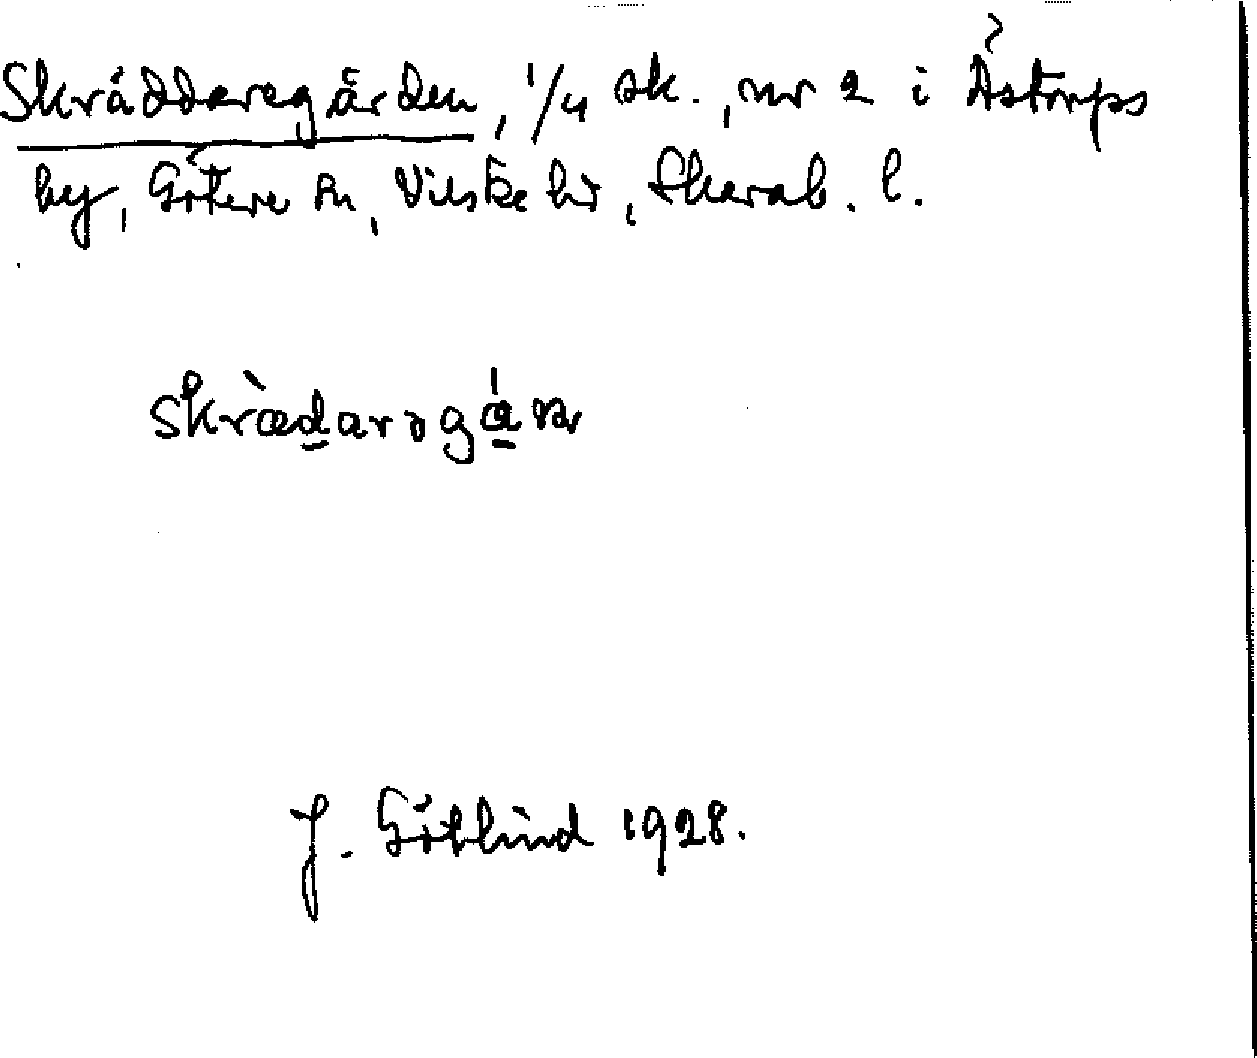 Skräddaregården, 1/4 sk., nr 2 i Åstorps
by, Götene sn, Vilske hd, Skarab. l.
skrædarəgáɳ
J. Götlind 1928.